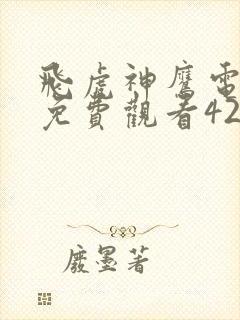 飛虎神鷹電
免費觀看42
廢墨著